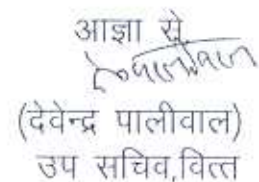 आज्ञा से
(देवेन्द्र पालीवाल)
उप सचिव,वित्त